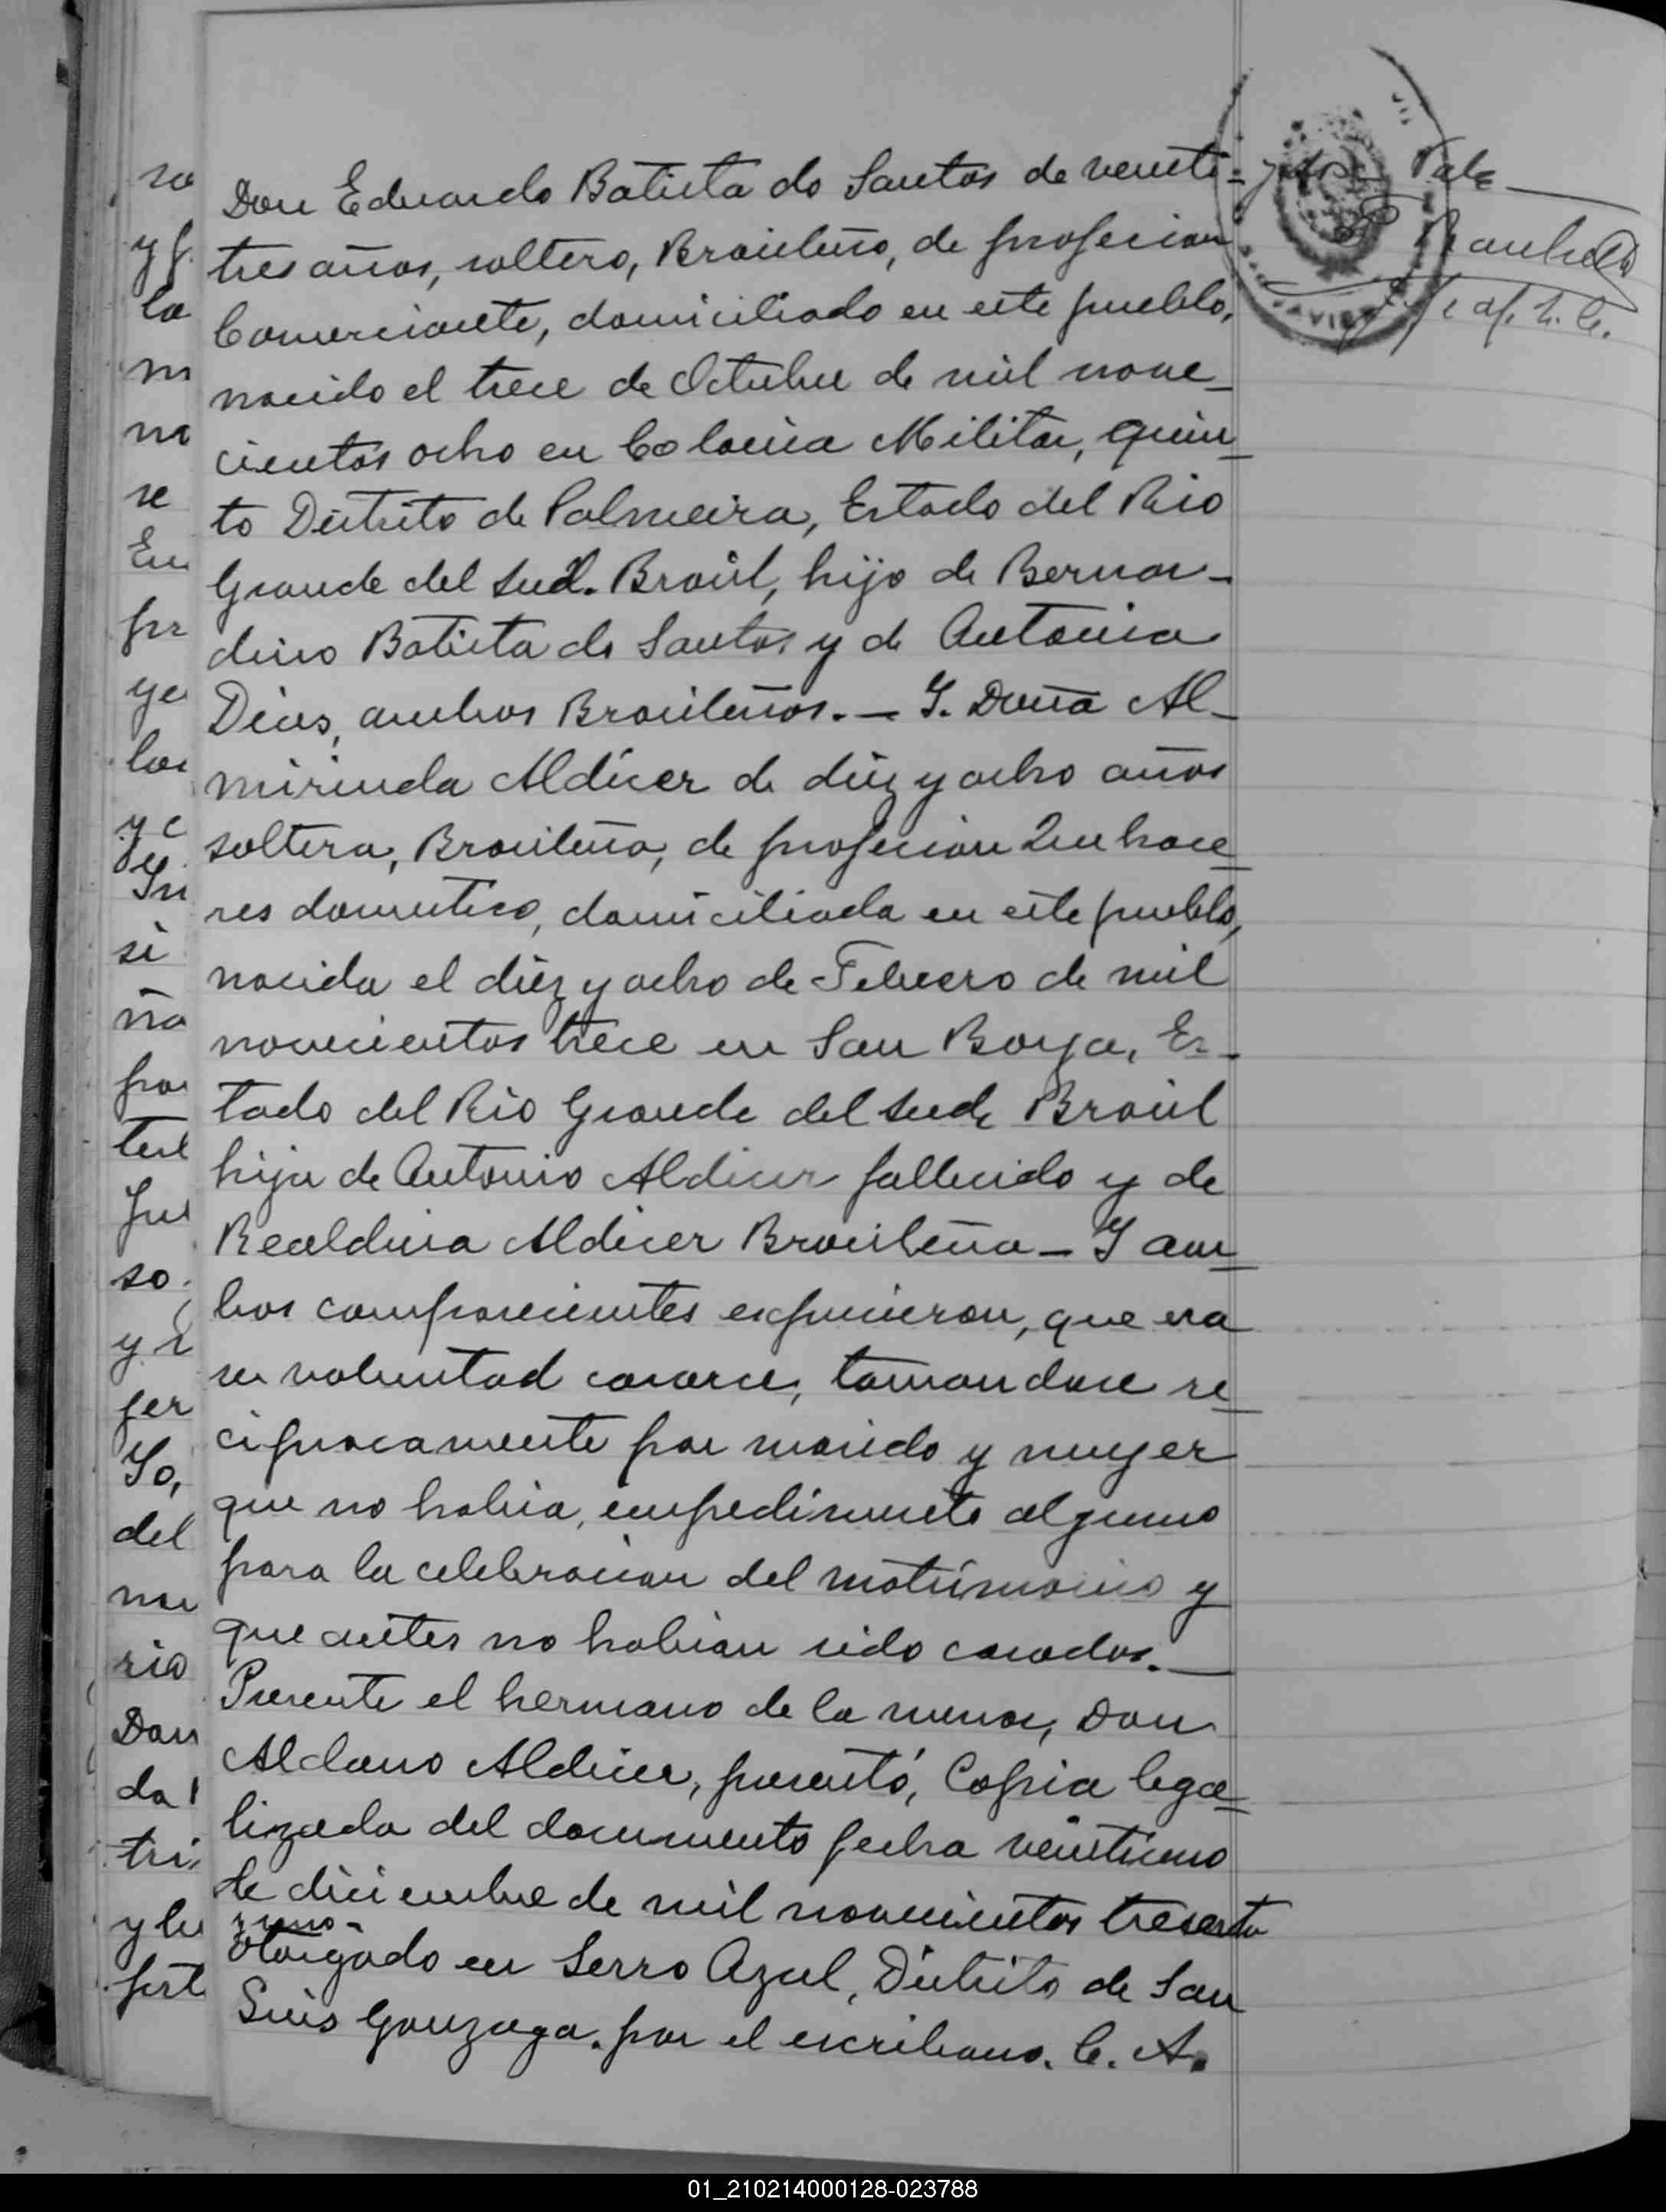 Don Eduardo Batista do Santos de venti=
tres años, soltero, Brasileño, de profesion
Comerciante, domiciliado en este pueblo,
nacido el trece de Octubre de mil nove_
cientos ocho en Colonia Militar, quin_
to Distrito de Palmeira, Estado del Rio
Grande del Sud. Brasil, hijo de Bernar_
dino Batista do Santos y de Antonia
Dias, ambos Brasileños. — Y. Doña Al_
mirinda Aldicer de diez y ocho años
soltera, Brasileña, de profesion Quehace_
res domestico, domiciliada en este pueblo,
nacida el diez y ocho de Febrero de mil
novecientos trece en San Borja, Es_
tado del Rio Grande del Sud, Brasil
hija de Antonio Aldicer fallecido y de
Realdina Aldicer Brasileña — Y am_
bos comparecientes expusieron, que era
su voluntad casarse, tomandose re_
ciprocamente por marido y mujer
que no habia, empedimento alguno
para la celebracion del matrimonio y
que antes no habian sido casados. —
Presente el hermano de la menor, Don
Aldano Aldicer, presentó, Copia lega_
lizada del documento fecha veintiuno
de diciembre de mil novecientos treenta
y uno-
otorgado en Serro Azul, Distrito de San
Luis Gonzaga. por el escribano. C. A.
Vale
01_210214000128-023788